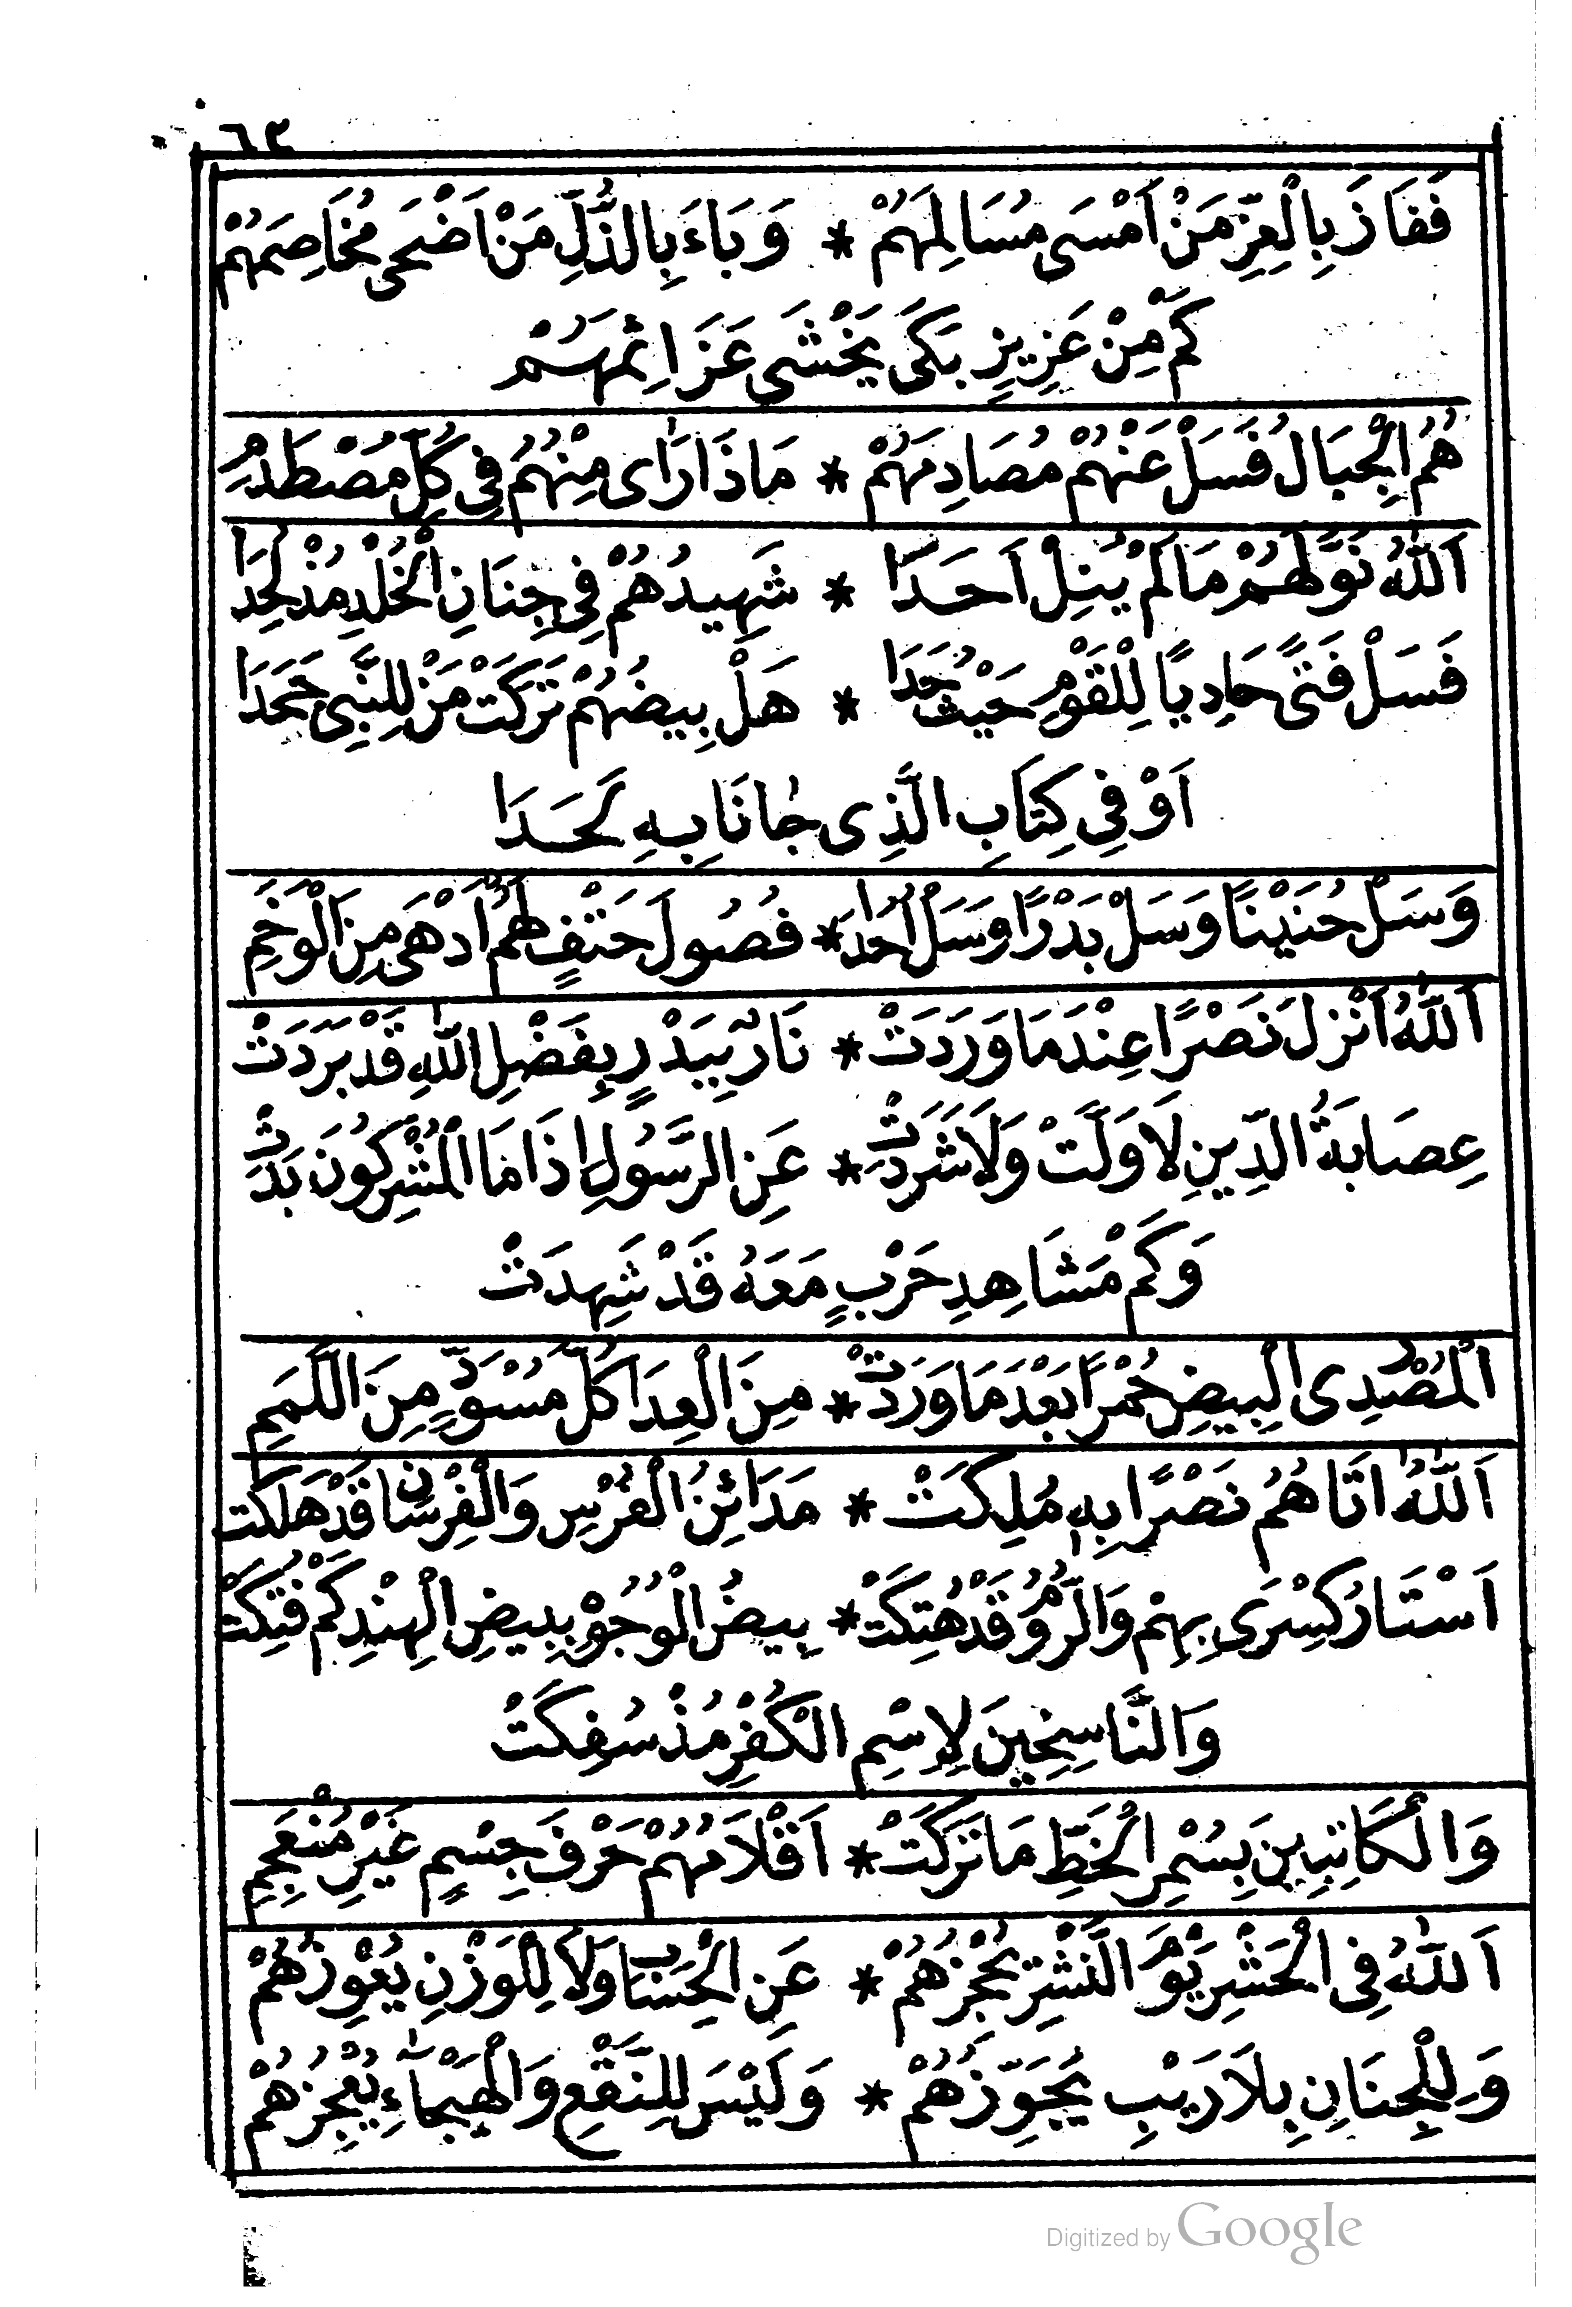 ٦٣
فَفَازَ بِالْعِزِّ مَنْ اَمْسَى مُسَالِمَهُمْ * وَبَاءَ بِالذُّلِّ مَنْ اَضْحَى مُخَاصِمَهُمْ
كَمْ مِنْ عَزِيزٍ بَكَى يَخْشَى عَزَائِمَهُمْ
هُمُ الْجِبَالُ فَسَلْ عَنْهُمْ مُصَادِمَهُمْ * مَاذَا رَاٰى مِنْهُمُ فِي كُلِّ مُصْطَدَمِ
اَللّٰهُ نَوَّلَهُمْ مَا لَمْ يُنِلْ اَحَدًا * شَهِيدُهُمْ فِي جِنَانِ الْخُلْدِ مُذْ لُحِدَا
فَسَلْ فَتًى حَادِيًا لِلْقَوْمِ حَيْثُ حَدَا * هَلْ بِيضُهُمْ تَرَكَتْ مَنْ لِلنَّبِى جَحَدَا
اَوْ فِي كِتَابِ الَّذِى جٰانَا بِهِ لَحَدَا
وَسَلْ حُنَيْنًا وَسَلْ بَدْرًا وَسَلْ اُحُدًا * فُصُولَ حَتْفٍ لَهُمْ اَدْهَى مِنَ الْوَخَمِ
اَللّٰهُ اَنْزَلَ نَصْرًا عِنْدَمَا وَرَدَتْ * نَارٌ بِبَدْرٍ بِفَضْلِ اللّٰهِ قَدْ بَرَدَتْ
عِصَابَةُ الدِّينِ لَا وَلَّتْ وَلَا شَرَدَتْ * عَنِ الرَّسُولِ اِذَا مَا الْمُشْرِكُونَ بَدَتْ
وَكَمْ مَشَاهِدِ حَرْبٍ مَعَهُ قَدْ شَهِدَتْ
اَلْمُصْدِرِى الْبِيضِ حُمْرًا بَعْدَمَا وَرَدَتْ * مِنَ الْعِدَا كُلَّ مُسْوَدٍّ مِنَ اللَّمَمِ
اَللّٰهُ اٰتَاهُمُ نَصْرًا بِهِ مُلِكَتْ * مَدَائِنُ الْفُرْسِ وَالْفِرْسَانُ قَدْ هَلَكَتْ
اَسْتَارُ كِسْرَى بِهِمْ وَالرُّومُ قَدْ هُتِكَتْ * بِيضُ الْوُجُوْهِ بِبِيضِ الْهِنْدِ كَمْ فَتَكَتْ
وَالنَّاسِخِينَ لِاِسْمِ الْكُفْرِ مُذْ سُفِكَتْ
وَالْكَاتِبِينَ بِسُمْرِ الْخَطِّ مَا تَرَكَتْ * اَقْلَامُهُمْ حَرْفَ جِسْمٍ غَيْرَ مُنْعَجِمِ
اَللّٰهُ فِى الْحَشْرِ يَوْمَ النَّشْرِ يُحْرِزُهُمْ * عَنِ الْحِسَابِ وَلَا لِلْوَزْنِ يُعْوِزُهُمْ
وَلِلْجِنَانِ بِلَا رَيْبٍ يُجَوِّزُهُمْ * وَلَيْسَ لِلنَّقْعِ وَالْهَيْجَاءِ يُعْجِزُهُمْ
Digitized by Google